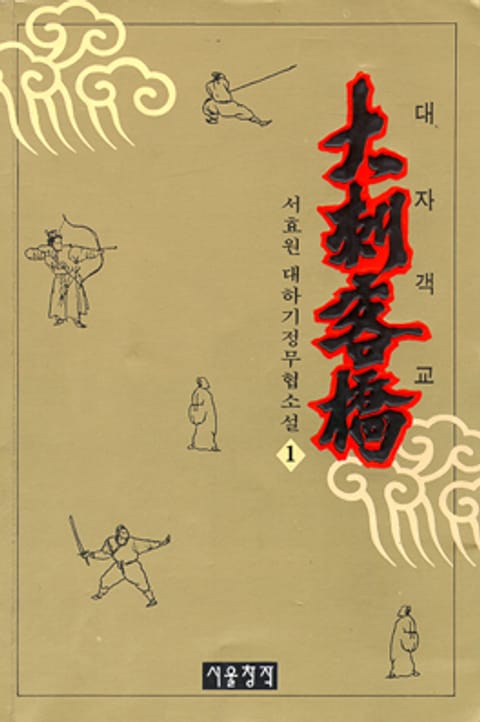 大刺客橋
대자객교
서효원 대하기정무협소설
1
서울창작